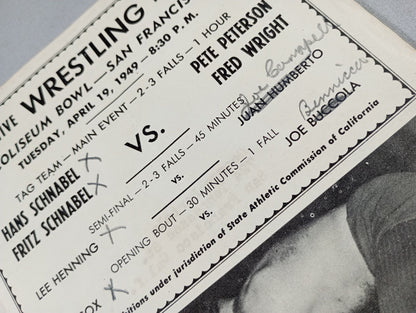 IVE WRESTLING
OLISEUM BOWL—SAN FRANCIS
TUESDAY, APRIL 19, 1949—8:30 P. M.
TAG TEAM—MAIN EVENT—2-3 FALLS—1 HOUR
HANS SCHNABEL X
FRITZ SCHNABEL X
VS.
PETE PETERSON
FRED WRIGHT
SEMI-FINAL—2-3 FALLS—45 MINUTES
LEE HENNING X
vs.
JUAN HUMBERTO
Joe
OPENING BOUT—30 MINUTES—1 FALL
OX X
vs.
JOE BUCCOLA
bitions under jurisdiction of State Athletic Commission of California